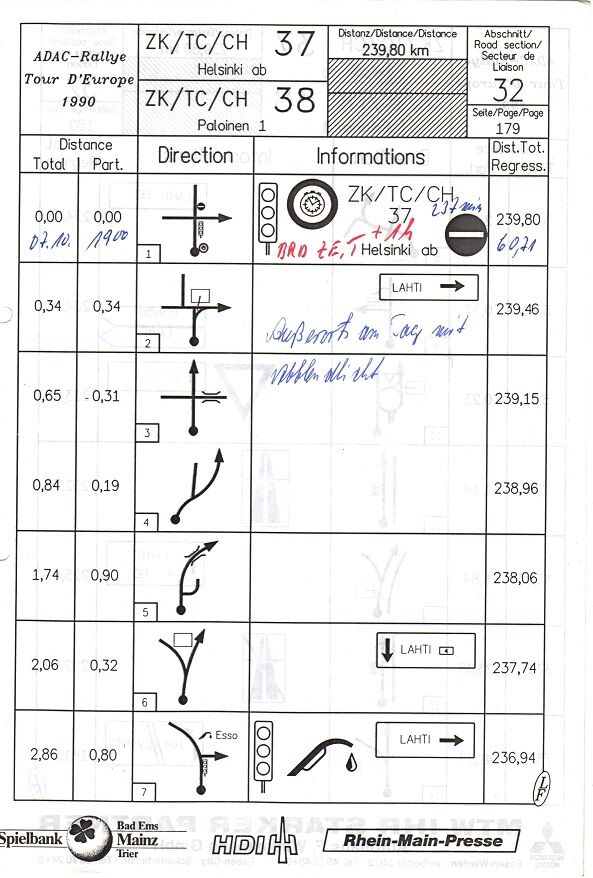 ADAC-Rallye
Tour D'Europe
1990
ZK/TC/CH 37
Helsinki ab
ZK/TC/CH 38
Paloinen 1
Distanz/Distance/Distance
239,80 km
Abschnitt/
Road section/
Secteur de
Liaison
32
Seite/Page/Page
179
Distance
Total Part.
Direction
Informations
Dist.Tot.
Regress.
0,00 0,00
07.10. 1900
1
ZK/TC/CH
37 237 min
+ 1h
Helsinki ab
239,80
60,71
0,34 0,34
2
LAHTI
Außerorts am Tag mit
239,46
0,65 0,31
3
239,15
0,84 0,19
4
238,96
1,74 0,90
5
238,06
2,06 0,32
6
LAHTI 4
237,74
2,86 0,80
Esso
7
LAHTI
236,94
I/F
Spielbank
Bad Ems
Mainz
Trier
HDI
Rhein-Main-Presse